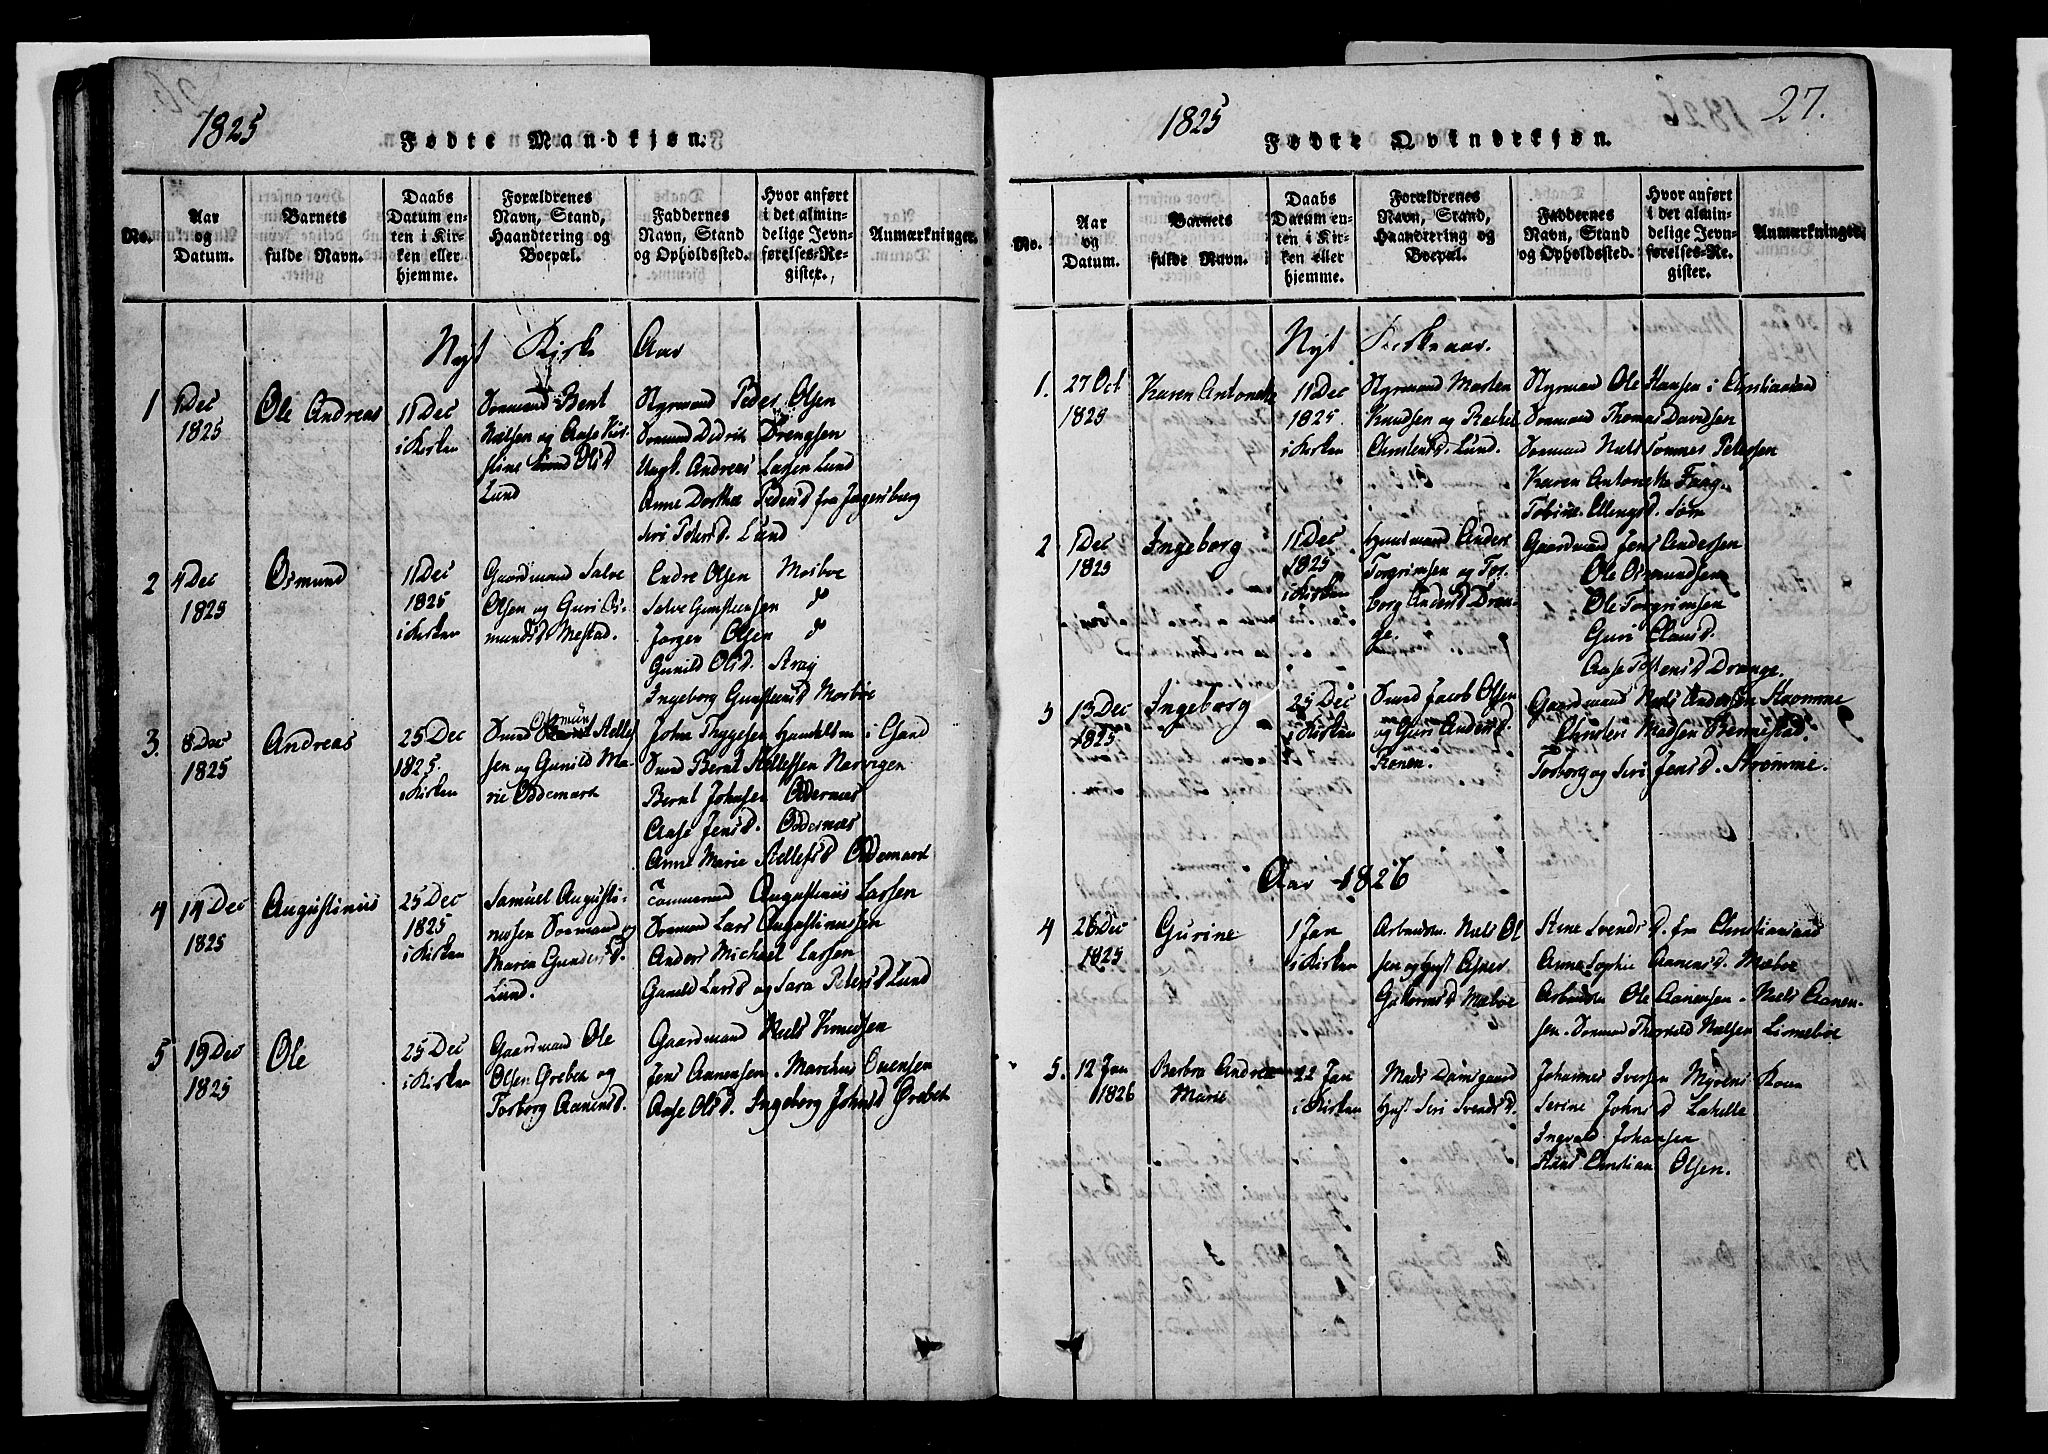 1825
Fødte Mandkjøn.
No.
Aar
og
Datum.
Barnets
fulde Navn.
Daabs
Datum en-
ten i Kir-
ken eller
hjemme.
Forældrenes
Navn, Stand,
Haandtering og
Boepæl.
Faddernes
Navn, Stand
og Opholdssted.
Hvor anført
i det almin-
delige Jevn-
førelses-Re-
gister.
Anmærkninger.
Nyt Kirke Aar
1
1 Dec
1825
Ole Andreas
11 Dec
i Kirken
Bent
Nielsen og Aase Kir-
stine Olsd
Lund
Styrmand Peder Olsen
Sømand Didrik Drengsen
Ungk. Andreas Larsen Lund
Anne Dorthea Pedersd fra Jegersberg
Siri Petersd. Lund
2
4 Dec
1825
Osmund
11 Dec
1825
i Kirken
Gaardmand Salve
Olsen og Guri Os-
mundsd Mestad.
Endre Olsen Mosbøe
Salve Gunsteensen do
Jørgen Olsen do
Gunild Olsd. Stray
Ingeborg Gunsteensd Mosbøe
3.
8 Dec
1825
Andreas
25 Dec
1825.
i Kirken
Osmun Stellef
sen og Gunild Ma-
rie Oddemark
John Thygesen Handelsm i Csand
Bernt Stellefsen Narvigen
Bernt Johnsen Oddernæs
Aase Jensd. Oddernæs
Anne Marie Stellefsd Oddemark
4
14 Dec
1825
Augustinus
25 Dec
1825
i Kirken
Samuel Augusti-
nussen Sømand og
Maren Gundersd.
Lund.
Tømmermd Augustinus Larsen
Sømand Lars Augustinussen
Anders Michael Larsen
Gunild Larsd og Sara Petersd Lund
5
19 Dec
1825
Ole
25 Dec
i Kirken
Gaardmand Ole
Olsen Grebek og
Torborg Aanensd.
Gaardmand Niels Knudsen
Jens Aanensen. Marchus Ovensen
Aase Olsd. Ingeborg Johnsd Grebek
1825
27.
Fødte Qvindekjøn.
No.
Aar
og
Datum.
Barnets
fulde Navn.
Daabs
Datum en-
ten i Kir-
ken eller
hjemme.
Forældrenes
Navn, Stand,
Haandtering og
Boepæl.
Faddernes
Navn, Stand
og Opholdssted.
Hvor anført
i det almin-
delige Jevn-
førelses-Re-
gister.
Anmærkninger.
Nyt Kirkeaar.
1.
27 Oct
1825
Karen Antonette
11 Dec
1825
i Kirken
Styrmand Morten
Knudsen og Rachel
Christensd. Lund.
Styrmand Ole Hansen i Christiansand
Sømand Thomas Davidsen
Sømand Niels Tønnes Petersen
Karen Antonette Fang.
Tobine Ellingsd. Søm
2
1 Dec
1825
Ingeborg
11 Dec
1825
i Kirken
Huusmand Anders
Torgrimsen og Tor-
borg Andersd Dran-
ge.
Gaardmand Jens Andersen
Ole Osmundsen
Ole Torgrimsen
Guri Clausd.
Aase Tostensd Drange.
3
13 Dec
1825
Ingeborg
25 Dec
i Kirken
Jacob Olsen
og Guri Andersd
Ronen.
Gaardmand Niels Andersen Strømme
Christen Madsen Bennestad.
Torborg og Siri Jensd. Strømme.
Aar 1826
4
26 Dec
1825
Gurine
1 Jan
i Kirken
Arbeidsm. Niels Ol
sen og Hust Asner
Guttormsd Mæbøe
Stine Svendsd. fra Christiansand
Anne Sophie Aanensd. Mæbøe
Arbeidsm Ole Aanensen. Niels Aanen-
sen. Sømand Thorvald Nielsen Linnebøe
5.
12 Jan
1826
Barbra Andrea
Marie
22 Jan
i Kirken
Mads Damsgaard
Hust Siri Svendsd.
Johannes Iversen Myrens Koen
Serine Johnsd Lahelle
Ingvald Johansen
Hans Christian Olsen.